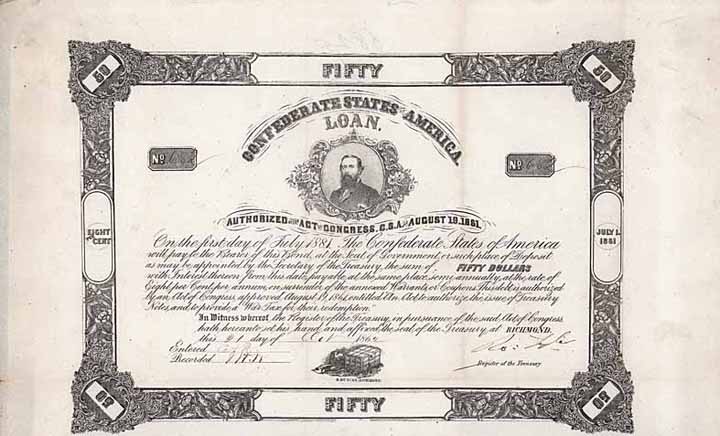 50
FIFTY
50
CONFEDERATE STATES AMERICA
LOAN.
No
No
AUTHORIZED ACT CONGRESS, C.S.A. AUGUST 19, 1861.
EIGHT
CENT
JULY 1.
1861
On the first day of July 1881, The Confederate States of America
will pay to the Bearer of this Bond, at the Seat of Government, or such place of Deposit
as may be appointed by the Secretary of the Treasury, the sum of FIFTY DOLLARS
with Interest thereon from this date, payable at the same place, semi annually, at the rate of
Eight per Cent per annum, on surrender of the annexed Warrants or Coupons. This debt is authorized
By an Act of Congress, approved August 19, 1861, entitled An Act to authorize the issue of Treasury
Notes, and to provide a War Tax for their redemption.
In Witness whereof, the Register of the Treasury, in pursuance of the said Act of Congress
hath hereunto set his hand and affixed the seal of the Treasury, at RICHMOND,
this 21 day of Oct 186
Entered
Recorded
Register of the Treasury
50
FIFTY
50